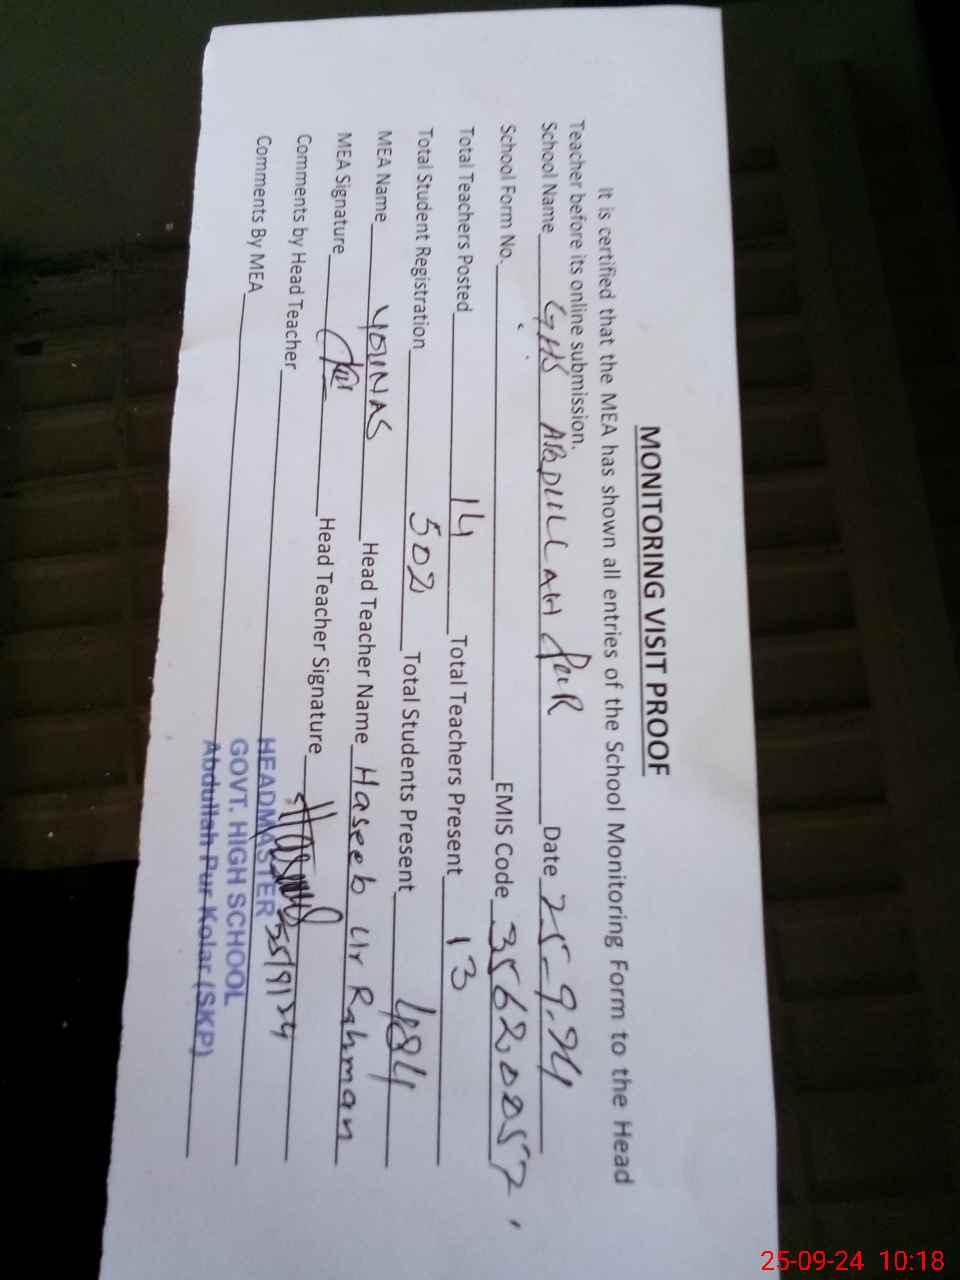 MONITORING VISIT PROOF
It is certified that the MEA has shown all entries of the School Monitoring Form to the Head
Teacher before its online submission.
School Name GHS ABDULLAH PUR Date 25-9-24
School Form No. EMIS Code 35620057
Total Teachers Posted 14 Total Teachers Present 13
Total Student Registration 502 Total Students Present 484
MEA Name YOUNAS Head Teacher Name Haseeb Ur Rahman
MEA Signature Head Teacher Signature
Comments by Head Teacher
HEADMASTER 25/9/24
Comments By MEA
GOVT. HIGH SCHOOL
Abdullah Pur Kolar (SKP)
25-09-24 10:18